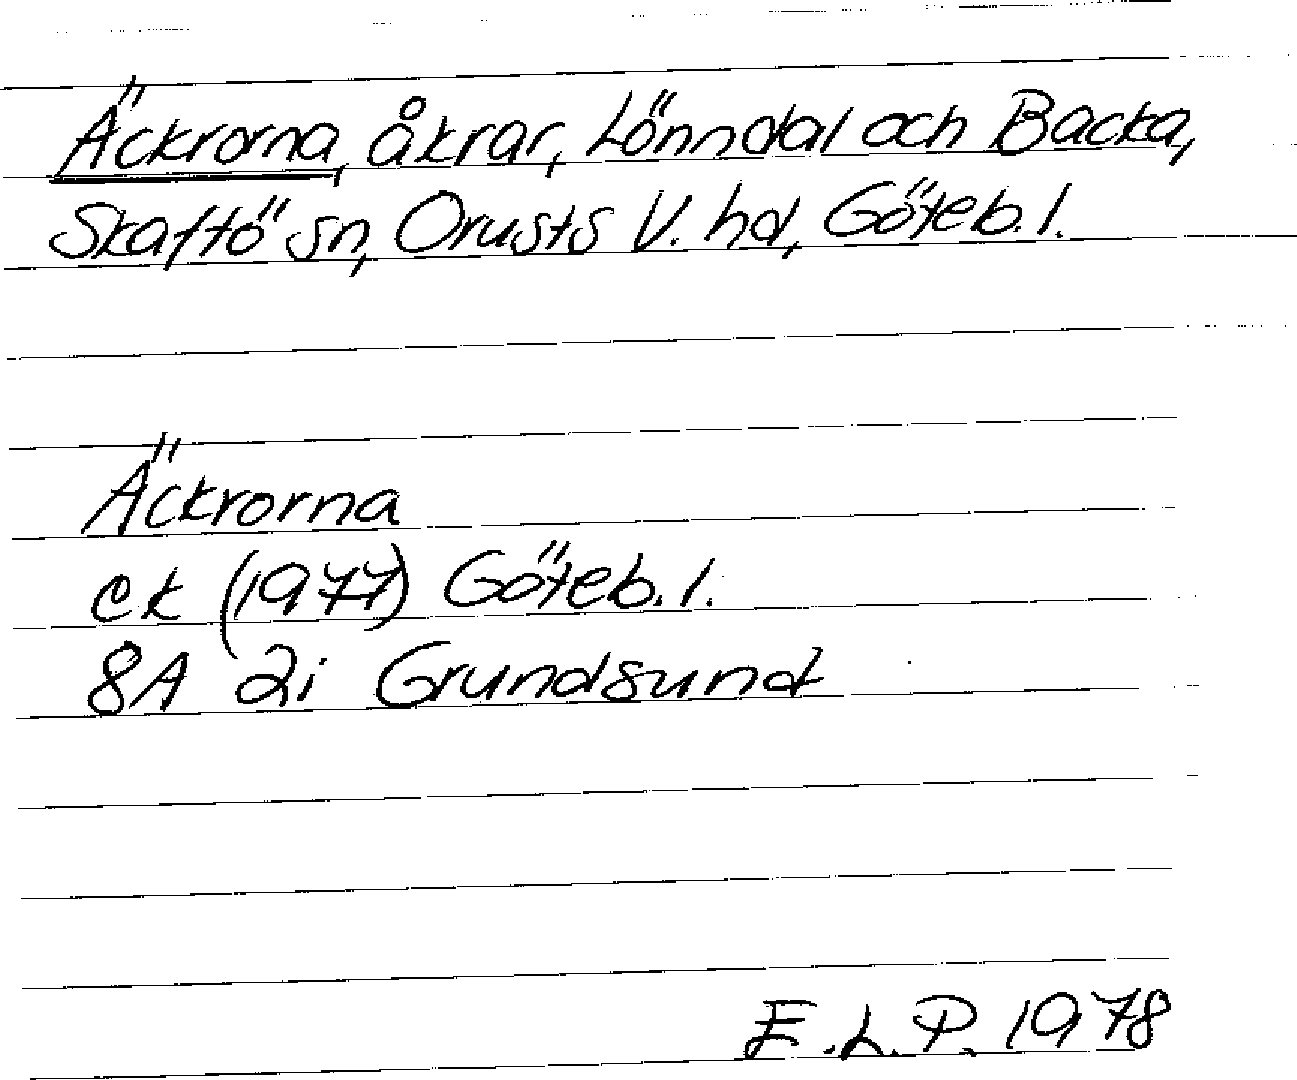 Äckrorna, åkrar, Lönndal och Backa,
Skaftö sn, Orusts V. hd, Göteb. l.
Äckrorna
ek (1977) Göteb. l.
8A 2i Grundsund
E.L.P. 1978